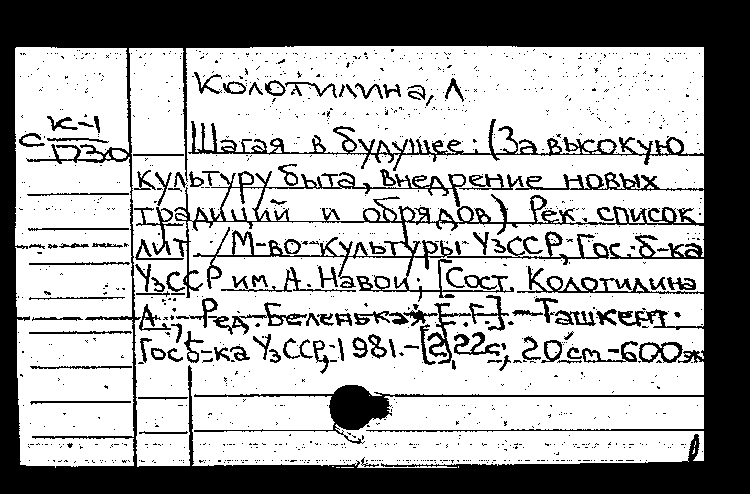 Колотилина, Л
С К-1
1730
Шагая в будущее: (За высокую
культуру быта, внедрение новых
традиций и обрядов). Рек. список
лит. / М-во культуры УзССР, Гос. б-ка
УзССР им. А. Навои; [Сост. Колотилина
Л.; Ред. Беленькая Е.Г.]. – Ташкент:
Гос б-ка УзССР, 1981. – [2], 22 с; 20 cm – 600 эк